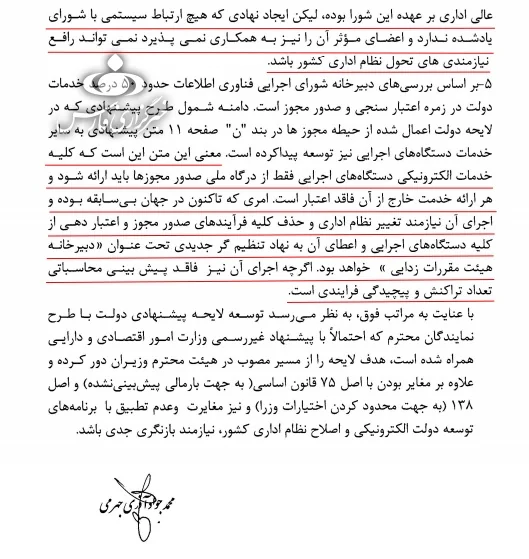 عالی اداری بر عهده این شورا بوده، لیکن ایجاد نهادی که هیچ ارتباط سیستمی با شورای
یادشده ندارد و اعضای مؤثر آن را نیز به همکاری نمی پذیرد نمی تواند رافع
نیازمندی های تحول نظام اداری کشور باشد.
۵-بر اساس بررسی‌های دبیرخانه شورای اجرایی فناوری اطلاعات حدود ۵۰ درصد خدمات
دولت در زمره اعتبار سنجی و صدور مجوز است. دامنه شمول طرح پیشنهادی که در
لایحه دولت اعمال شده از حیطه مجوز ها در بند "ن" صفحه ۱۱ متن پیشنهادی به سایر
خدمات دستگاه‌های اجرایی نیز توسعه پیداکرده است. معنی این متن این است که کلیه
خدمات الکترونیکی دستگاه‌های اجرایی فقط از درگاه ملی صدور مجوزها باید ارائه شود و
هر ارائه خدمت خارج از آن فاقد اعتبار است. امری که تاکنون در جهان بی‌سابقه بوده و
اجرای آن نیازمند تغییر نظام اداری و حذف کلیه فرآیندهای صدور مجوز و اعتبار دهی از
کلیه دستگاه‌های اجرایی و اعطای آن به نهاد تنظیم گر جدیدی تحت عنوان «دبیرخانه
هیئت مقررات زدایی » خواهد بود. اگرچه اجرای آن نیز فاقد پیش بینی محاسباتی
تعداد تراکنش و پیچیدگی فرایندی است.
با عنایت به مراتب فوق، به نظر می‌رسد توسعه لایحه پیشنهادی دولت با طرح
نمایندگان محترم که احتمالاً با پیشنهاد غیررسمی وزارت امور اقتصادی و دارایی
همراه شده است، هدف لایحه را از مسیر مصوب در هیئت محترم وزیران دور کرده و
علاوه بر مغایر بودن با اصل ۷۵ قانون اساسی( به جهت بارمالی پیش‌بینی‌نشده) و اصل
۱۳۸ (به جهت محدود کردن اختیارات وزرا) و نیز مغایرت وعدم تطبیق با برنامه‌های
توسعه دولت الکترونیکی و اصلاح نظام اداری کشور، نیازمند بازنگری جدی باشد.
محمد جواد آذری جهرمی
خبرگزاری فارس